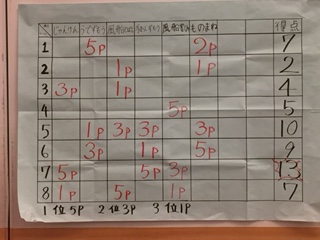 じゃんけん うでずもう 風船 風船 ものまね 得点
1 5P 2P 7
2 1P 1P 2
3 3P 1P 4
4 5P 5
5 1P 3P 3P 3P 10
6 3P 1P 5P 9
7 5P 5P 3P 13
8 1P 5P 1P 7
1位5P 2位3P 3位1P